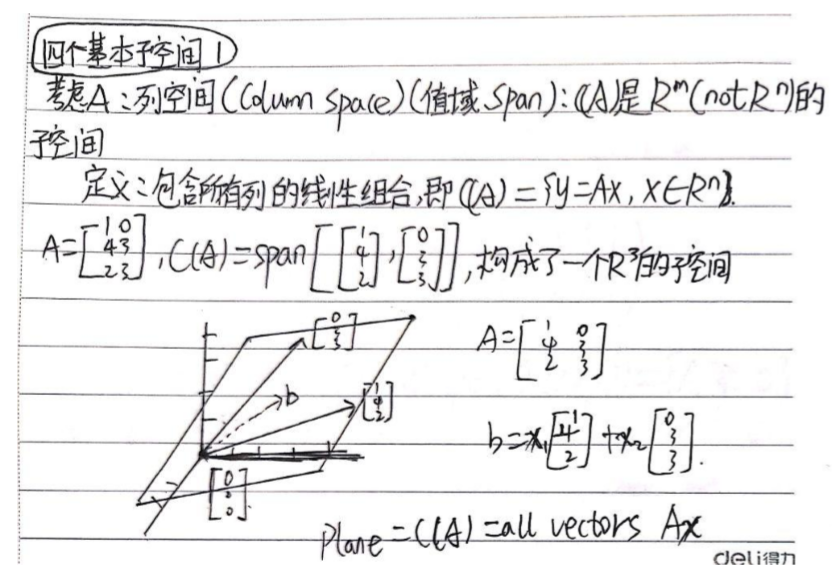 四个基本子空间 1
考虑A：列空间(Column space)(值域span)：C(A)是R^m(not R^n)的
子空间
定义：包含所有列的线性组合，即C(A)={y=Ax, x∈R^n}.
A=[1 0; 4 3; 2 3], C(A)=span[[1 4 2],[0 3 3]], 构成了一个R^3的子空间
[0 3 3]
A=[1 0; 4 3; 2 3]
b
[1 4 2]
b=x₁[1 4 2]+x₂[0 3 3].
[0 0 0]
Plane=C(A)=all vectors Ax
deli得力